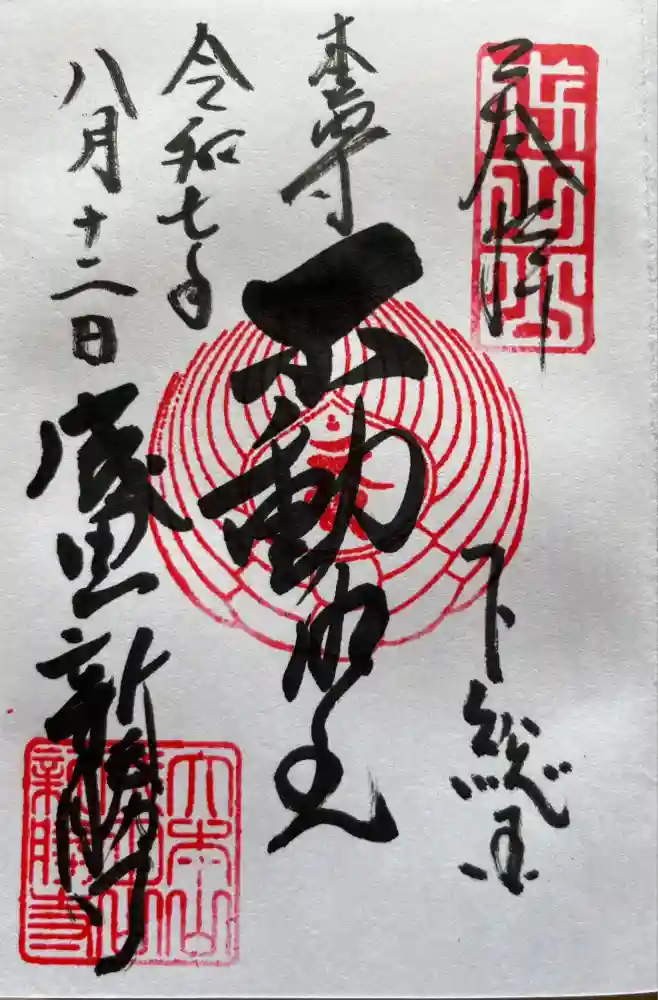 奉拝
下総国
本尊
不動明王
令和七年
八月十二日
成田山新勝寺
成田山
大本山
成田山
新勝寺